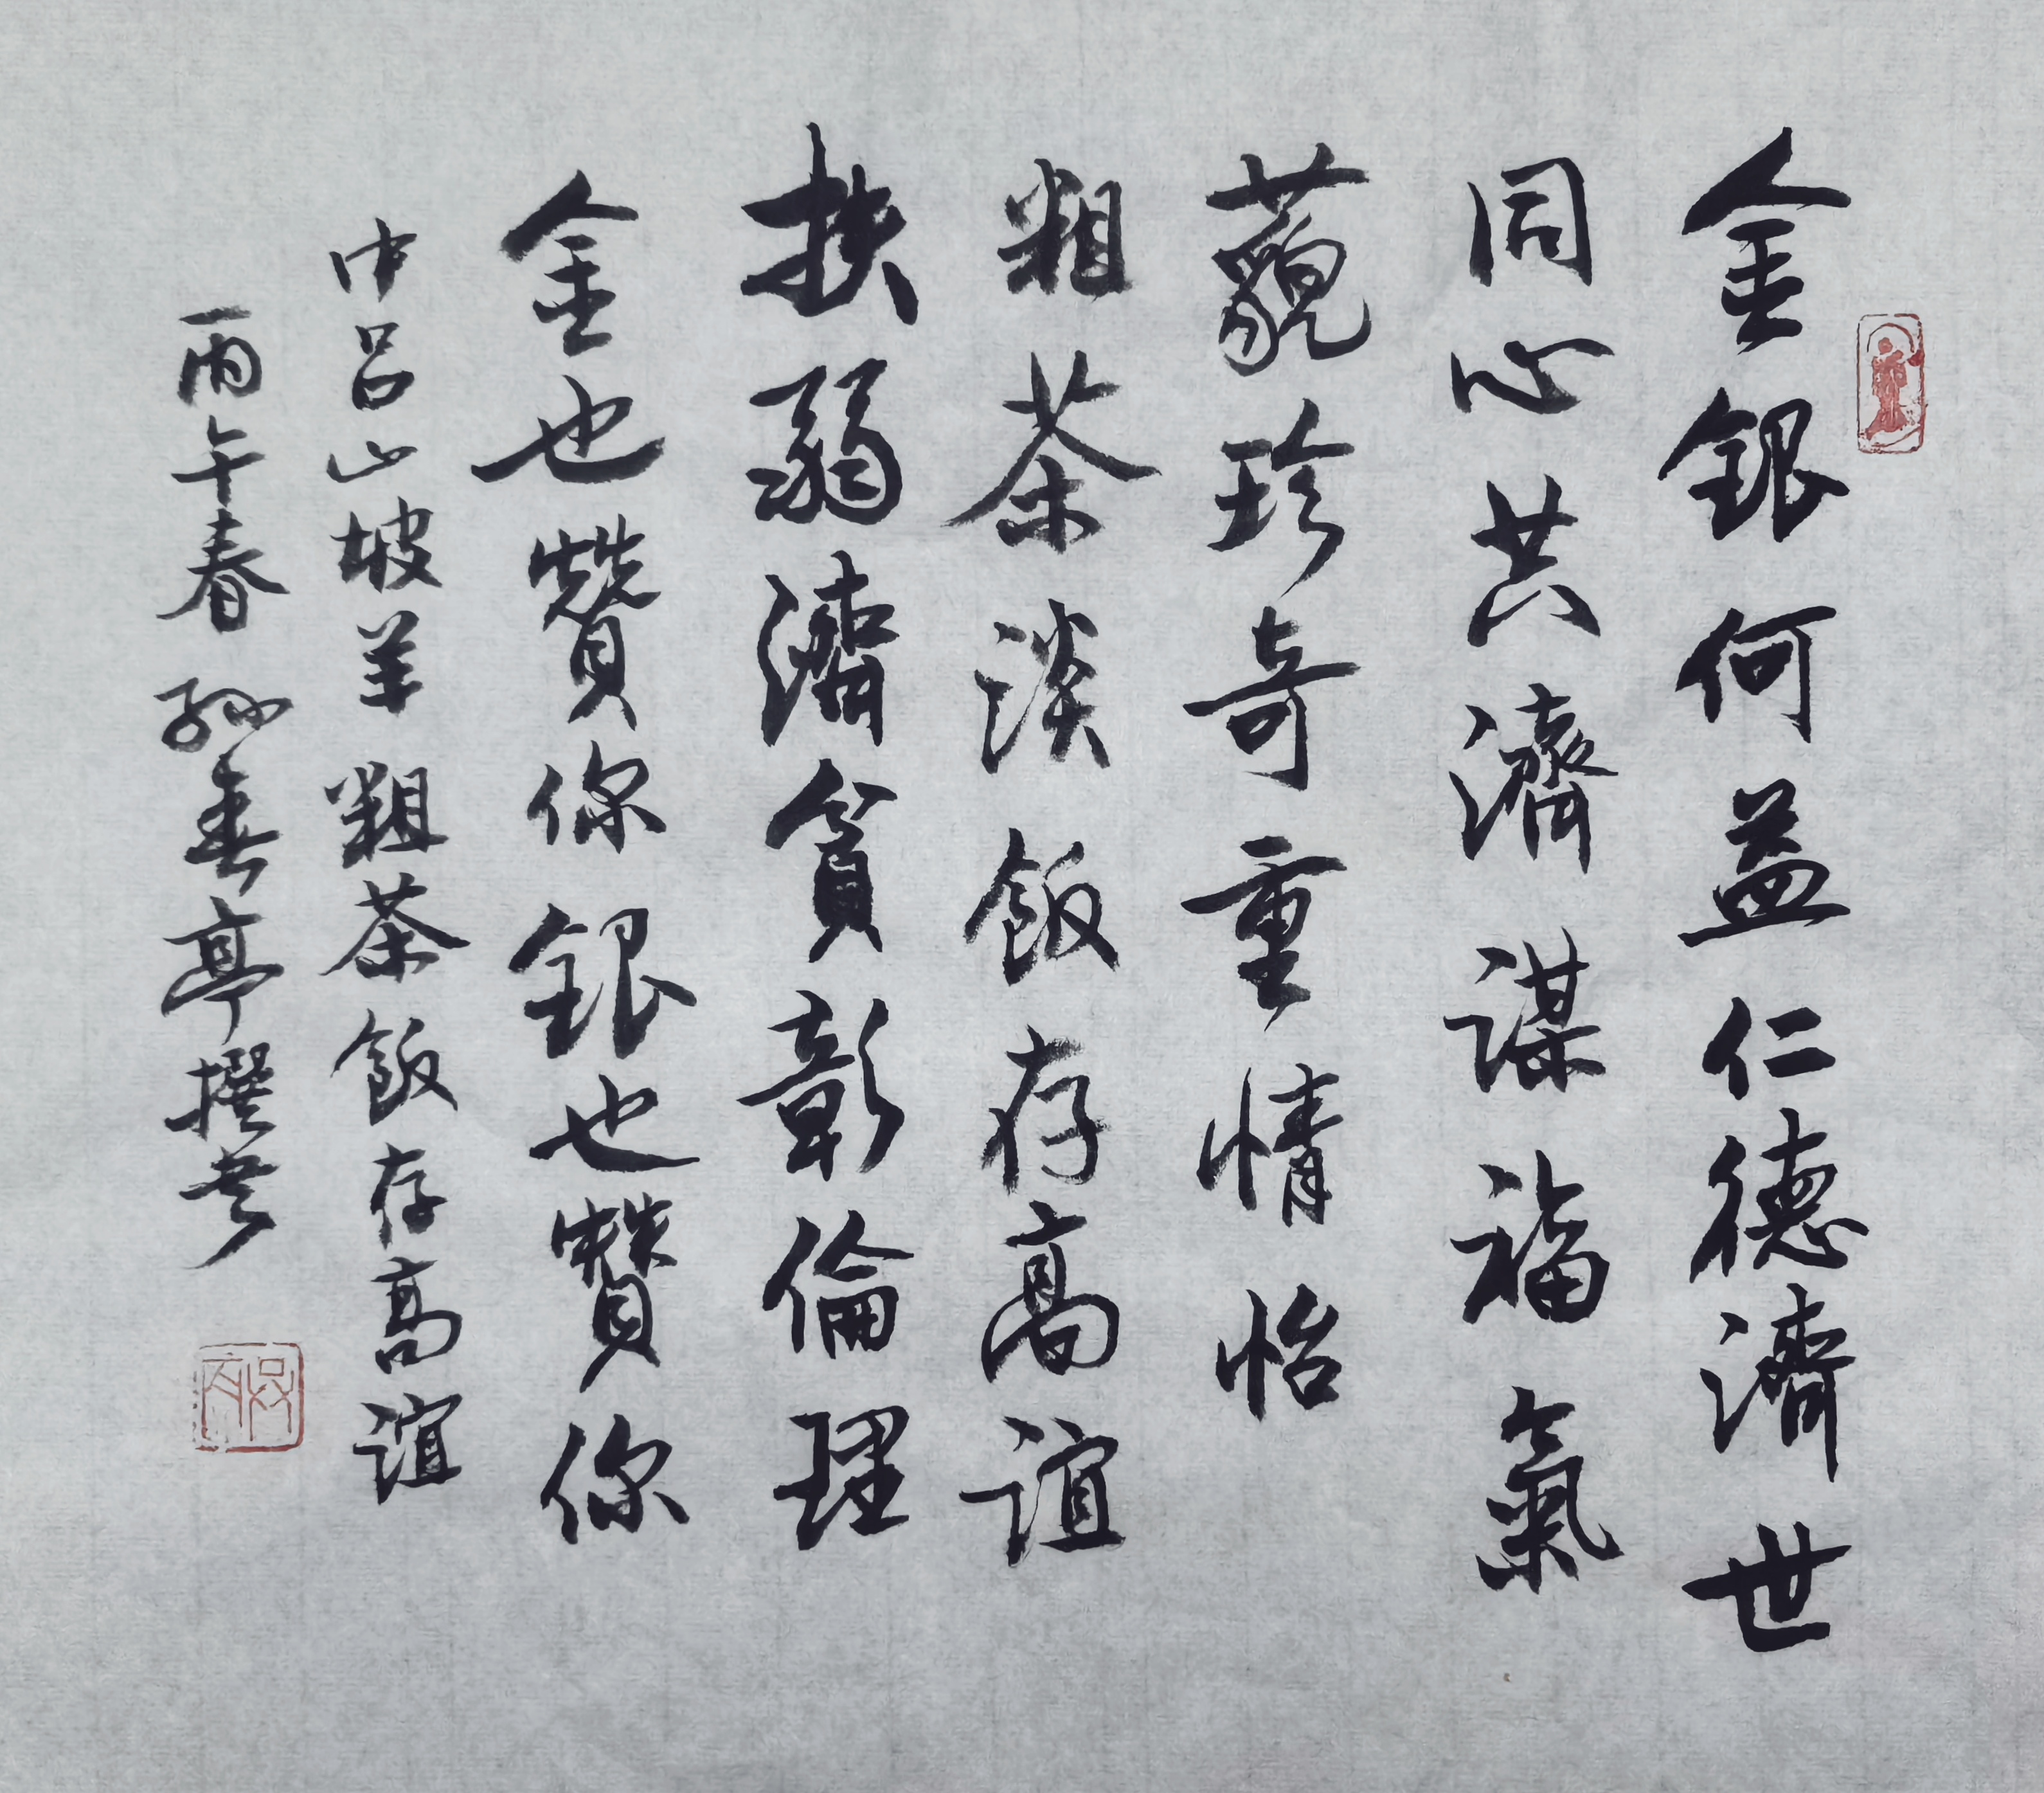 金銀何益仁德濟世
同心共濟謀福氣
藐珍奇重情怡
粗茶淡飯存高誼
扶弱濟貧彰倫理
金也贊你銀也贊你
中呂山坡羊 粗茶飯存高誼
丙午春 孫亭撰書